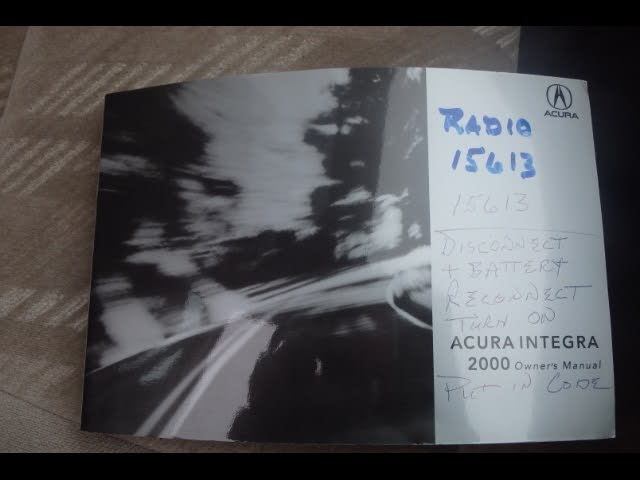 ACURA
RADIO
15613
15613
DISCONNECT
+ BATTERY
RECONNECT
TURN ON
ACURA INTEGRA
2000 Owner's Manual
PUT IN CODE